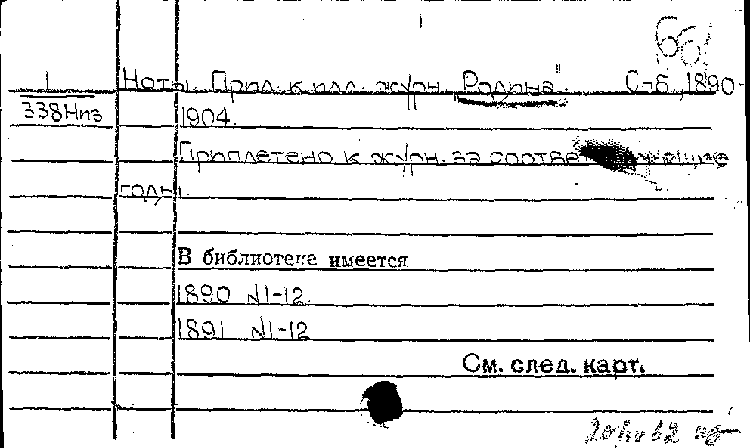 1
338Низ
Ноты. Прил. к илл. журн. "Родина". С-пб., 1890-
1904.
Приплетено к журн. за
годы.
В библиотеке имеется
1890 №1-12.
1891 №1-12
См. след. карт.